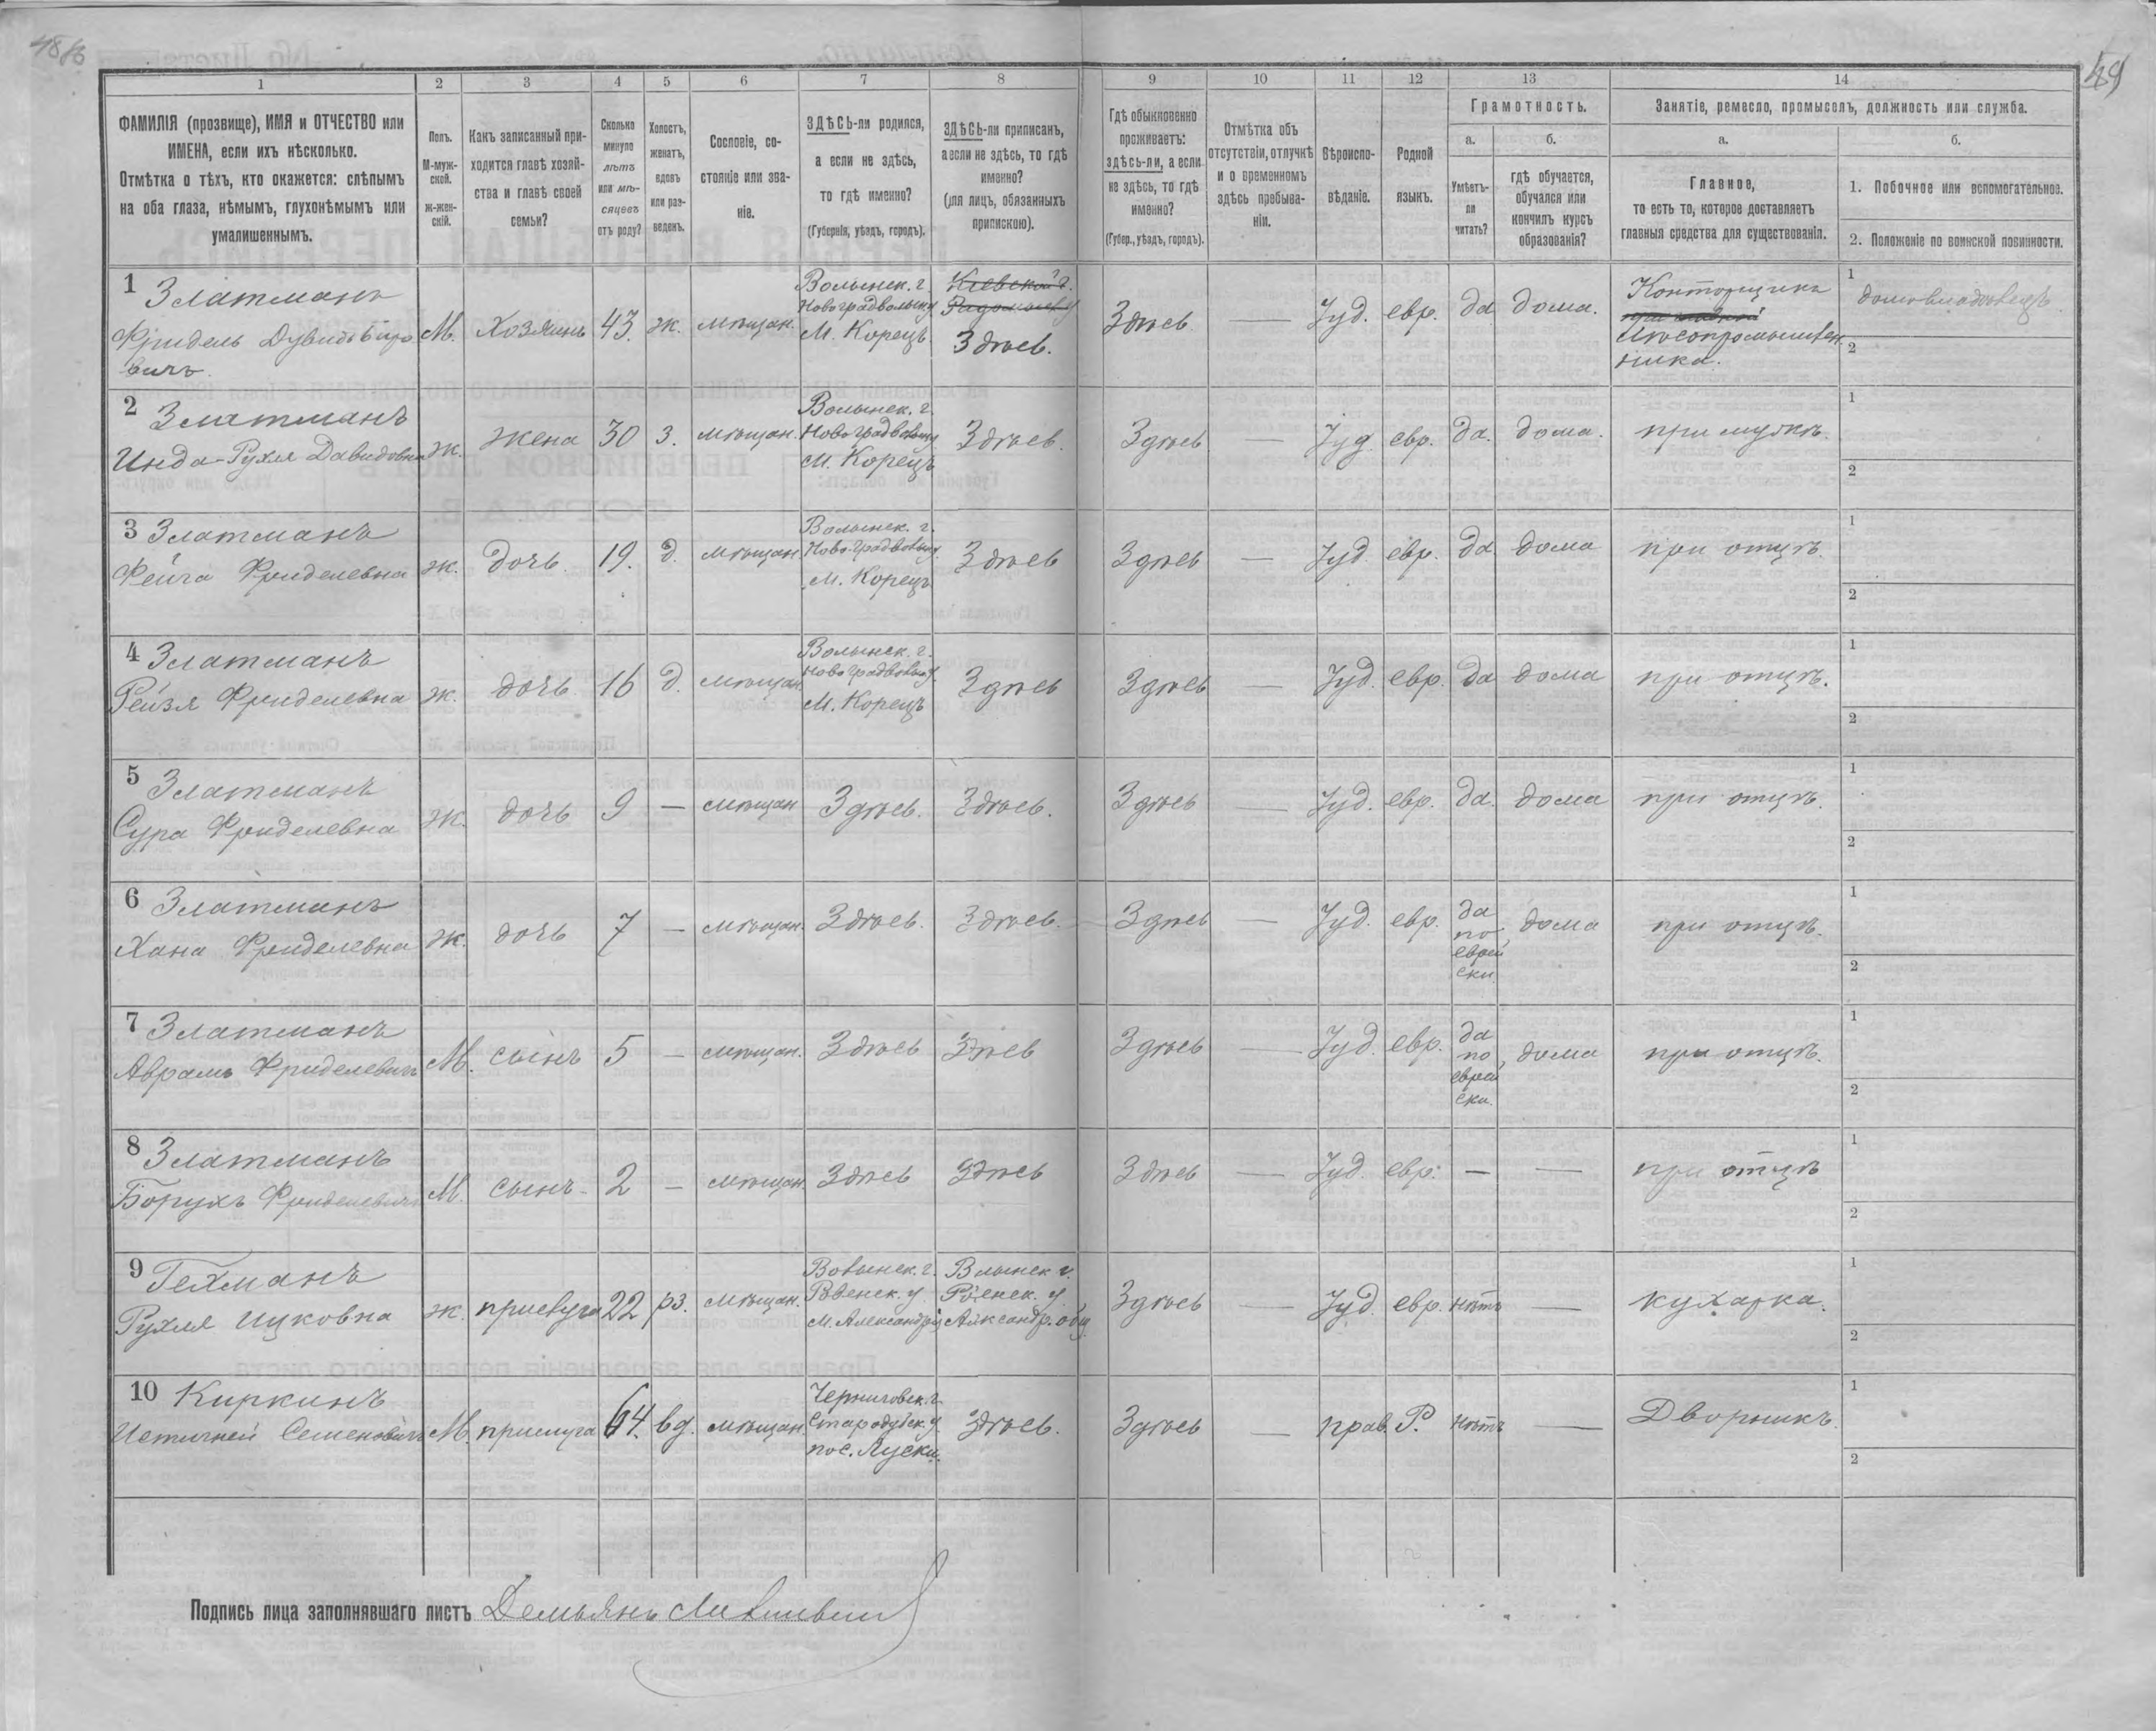 49
1
2
3
4
5
6
7
8
9
10
11
12
13
14
ФАМИЛІЯ (прозвище), ИМЯ и ОТЧЕСТВО или
ИМЕНА, если ихъ нѣсколько.
Отмѣтка о тѣхъ, кто окажется: слѣпымъ
на оба глаза, нѣмымъ, глухонѣмымъ или
умалишеннымъ.
Полъ.
М-муж-
ской.
ж-жен-
скій.
Какъ записанный при-
ходится главѣ хозяй-
ства и главѣ своей
семьи?
Сколько
минуло
лѣтъ
или мѣ-
сяцевъ
отъ роду?
Холостъ,
женатъ,
вдовъ
или раз-
веденъ.
Сословіе, со-
стояніе или зва-
ніе.
ЗДѢСЬ-ли родился,
а если не здѣсь,
то гдѣ именно?
(Губернія, уѣздъ, городъ).
ЗДѢСЬ-ли приписанъ,
а если не здѣсь, то гдѣ
именно?
(для лицъ, обязанныхъ
припискою).
Гдѣ обыкновенно
проживаетъ:
здѣсь-ли, а если
не здѣсь, то гдѣ
именно?
(Губер., уѣздъ, городъ).
Отмѣтка объ
отсутствіи, отлучкѣ
и о временномъ
здѣсь пребыва-
ніи.
Вѣроиспо-
вѣданіе.
Родной
языкъ.
Грамотность.
а.
б.
Умѣетъ-
ли
читать?
гдѣ обучается,
обучался или
кончилъ курсъ
образованія?
Занятіе, ремесло, промыселъ, должность или служба.
а.
б.
Главное,
то есть то, которое доставляетъ
главныя средства для существованія.
1. Побочное или вспомогательное.
2. Положеніе по воинской повинности.
1 Златманъ
Фридель Дувидъ Биро
вичъ.
М.
Хозяинъ
43.
ж.
мѣщан.
Волынск. г.
Новоградволыну
М. Корецъ
Кіевской г.
Радомысл у
Здѣсь.
Здѣсь.
—
Іуд.
евр.
да
дома.
Конторщика
Лѣсопромышлен
ника.
1
домовладѣлецъ
2
2 Златманъ
Инда-Рухля Давидовна
ж.
жена
30
з.
мѣщан.
Волынск. г.
Новоградволыну
М. Корецъ
Здѣсь.
Здѣсь
—
Іуд.
евр.
да.
дома.
при мужѣ.
1
2
3 Златманъ
Фейга Фриделевна
ж.
дочь.
19.
д.
мѣщан.
Волынск. г.
Новоградволыну
М. Корецъ
Здѣсь
Здѣсь
—
Іуд.
евр.
да
дома
при отцѣ.
1
2
4 Златманъ
Рейзя Фриделевна
ж.
дочь
16
д.
мѣщан.
Волынск. г.
Новоградволыну.
М. Корецъ
Здѣсь
Здѣсь
—
Іуд.
евр.
да
дома
при отцѣ.
1
2
5 Златманъ
Сура Фриделевна
ж.
дочь
9
—
мѣщан
Здѣсь.
Здѣсь.
Здѣсь
—
Іуд.
евр.
да.
дома
при отцѣ.
1
2
6 Златманъ
Хана Фриделевна
ж.
дочь
7
—
мѣщан.
Здѣсь.
Здѣсь.
Здѣсь
—
Іуд.
евр.
да
по
еврей
ски
дома
при отцѣ.
1
2
7 Златманъ
Аврамъ Фриделевичъ
М.
сынъ
5
—
мѣщан.
Здѣсь
Здѣсь
Здѣсь
—
Іуд.
евр.
да
по
еврей
ски.
дома
при отцѣ.
1
2
8 Златманъ
Борухъ Фриделевичъ
М.
сынъ
2
—
мѣщан.
Здѣсь
Здѣсь
Здѣсь
—
Іуд.
евр.
—
—
при отцѣ
1
2
9 Гехманъ
Рухля Ицковна
ж.
прислуга
22
рз.
мѣщан.
Волынск. г.
Ровенск. у
м. Александрія
Влынск г.
Ровенск. у.
Александр. общ
Здѣсь
Іуд.
евр.
нѣтъ
—
кухарка.
1
2
10 Киркинъ
Семеновичъ
М.
прислуга
64.
вд.
мѣщан.
Черниговск. г.
Стародубск. у.
пос. Лужки.
Здѣсь.
Здѣсь
—
прав.
Р.
нѣтъ
—
Дворникъ.
1
2
Подпись лица заполнявшаго листъ Демьянъ